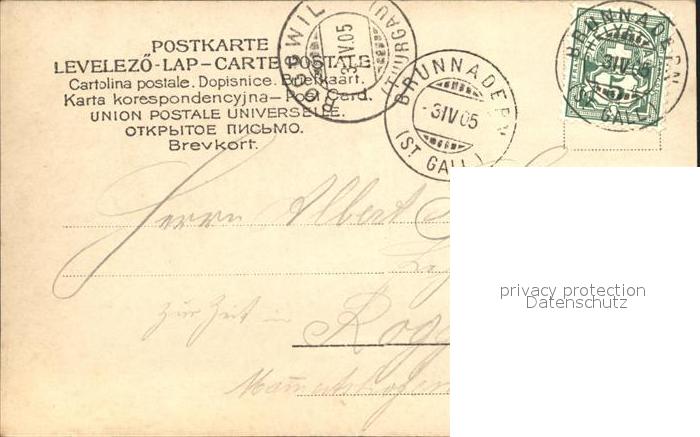 POSTKARTE
LEVELEZŐ-LAP-CARTE POSTALE
Cartolina postale. Dopisnice. Brevkaart.
Karta korespondencyjna—Post Card.
UNION POSTALE UNIVERSELLE.
ОТКРЫТОЕ ПИСЬМО.
Brevkort.
ROGGWIL
3 IV 05
(THURGAU)
BRUNNADERN
-3 IV 05
(ST GALL.)
BRUNNADERN
HELVETIA
3 IV 05
5
(ST GALL.)
Herrn Albert
zur Zeit in
Rogg
privacy protection
Datenschutz